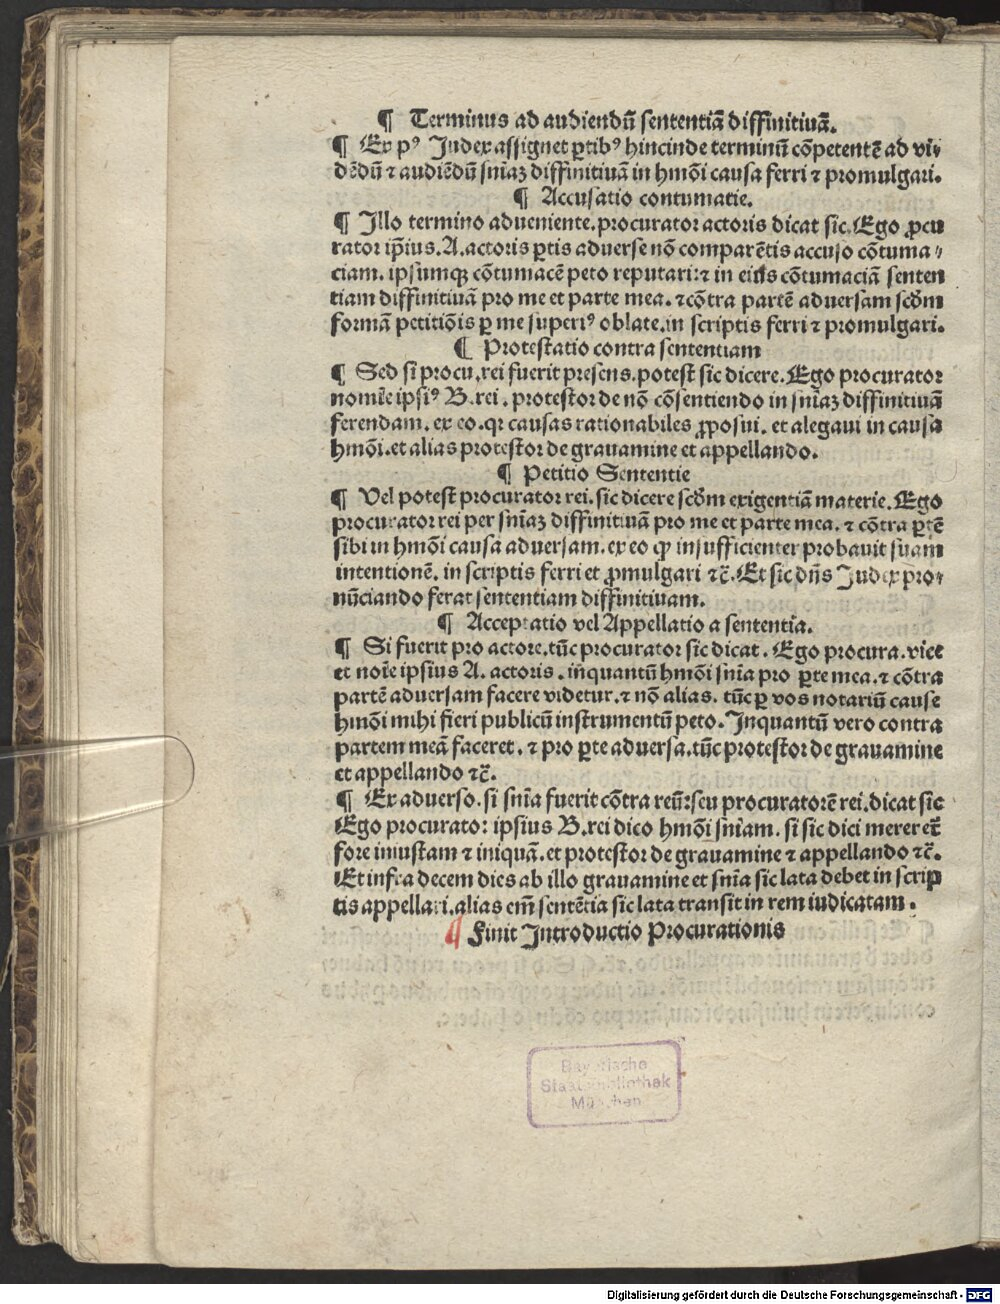 ¶ Terminus ad audiendū sententiā diffinitiuā.
¶ Ex pꝰ Judex assignet ꝑtibꝰ hincinde terminū cōpetentē ad vi-
dēdū ⁊ audiēdū sniaꝫ diffinitiuā in hmōi causa ferri ⁊ promulgari.
¶ Accusatio contumatie.
¶ Illo termino adueniente. procurator actoris dicat sic. Ego ꝓcu
rator ip̄ius. A. actoris ꝑtis aduerse nō comparētis accuso cōtuma-
ciam. ipsumqꝫ cōtumacē peto reputari: ⁊ in eius cōtumaciā senten
tiam diffinitiuā pro me et parte mea. ⁊ cōtra partē aduersam scd̄m
formā petitiōis ꝑ me superiꝰ oblate. in scriptis ferri ⁊ promulgari.
¶ Protestatio contra sententiam
¶ Sed si procu. rei fuerit presens. potest sic dicere. Ego procurator
nomīe ipsiꝰ B. rei. protestor de nō cōsentiendo in sn̄iaꝫ diffinitiuā
ferendam. ex eo. qꝛ causas rationabiles ꝓposui. et alegaui in causa
hmōi. et alias protestor de grauamine et appellando.
¶ Petitio Sententie
¶ Vel potest procurator rei. sic dicere scd̄m exigentiā materie. Ego
procurator rei per sn̄iaꝫ diffinitiuā pro me et parte mea. ⁊ cōtra ꝑtē
sibi in hmōi causa aduersam. ex eo ꝙ insufficienter probauit suam
intentionē. in scriptis ferri et ꝓmulgari ⁊c̄. Et sic dn̄s Judex pro-
nūciando ferat sententiam diffinitiuam.
¶ Acceptatio vel Appellatio a sententia.
¶ Si fuerit pro actore. tūc procurator sic dicat. Ego procura. vice
et noīe ipsius A. actoris. inquantū hmōi sn̄ia pro ꝑte mea. ⁊ cōtra
partē aduersam facere videtur. ⁊ nō alias. tūc ꝑ vos notariū cause
hmōi mihi fieri publicū instrumentū peto. Inquantū vero contra
partem meā faceret. ⁊ pro ꝑte aduersa. tūc protestor de grauamine
et appellando ⁊c̄.
¶ Ex aduerso. si sn̄ia fuerit cōtra reū: seu procuratorē rei. dicat sic
Ego procurator ipsius B. rei dico hmōi sn̄iam. si sic dici mereret̄
fore iniustam ⁊ iniquā. et protestor de grauamine ⁊ appellando ⁊c̄.
Et infra decem dies ab illo grauamine et sn̄ia sic lata debet in scrip
tis appellari. alias em̄ sentētia sic lata transit in rem iudicatam.
¶ Finit Introductio Procurationis
Bayerische
Staatsbibliothek
München
Digitalisierung gefördert durch die Deutsche Forschungsgemeinschaft - DFG